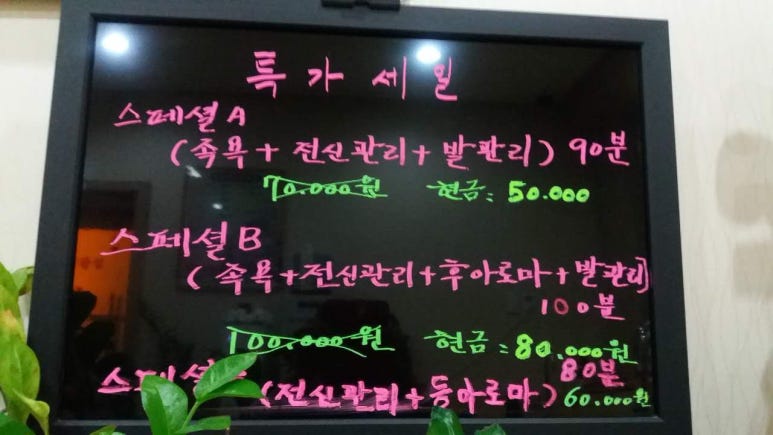 특가세일
스페셜 A
(족욕 + 전신관리 + 발관리) 90분
70.000원 현금: 50.000
스페셜 B
(족욕 + 전신관리 + 후아로마 + 발관리)
100분
100.000원 현금: 80.000원
80분
스페셜 (전신관리 + 등아로마) 60.000원